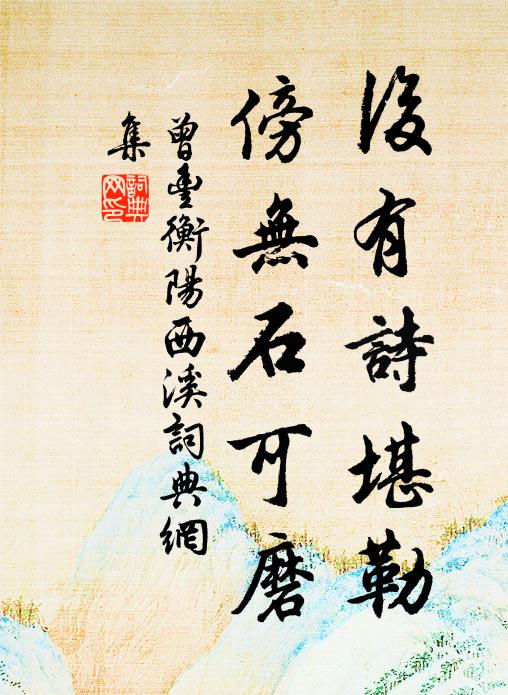 後有詩堪勒
傍無石可磨
曾豐衡陽西溪詞典網
集
詞典
网印